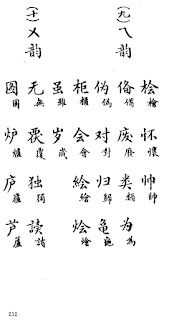 (九)ㄟ韵
桧檜 怀懷 帅帥
俻備 废廢 类類 为為
伪偽 对對 归歸 龟龜
柜櫃 会會 绘繪 烩燴
虽雖 岁歲
(十)ㄨ韵
无無 覆 独獨 读讀
图圖 炉爐 庐廬 芦蘆
232